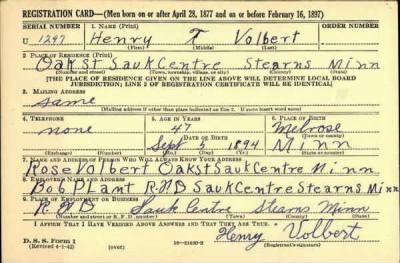 REGISTRATION CARD—(Men born on or after April 28, 1877 and on or before February 16, 1897)
SERIAL NUMBER 1. NAME (Print) ORDER NUMBER
U 1297 Henry T Volbert
(First) (Middle) (Last)
2. PLACE OF RESIDENCE (Print)
Oak St Sauk Centre Stearns Minn
(Number and street) (Town, township, village, or city) (County) (State)
[THE PLACE OF RESIDENCE GIVEN ON THE LINE ABOVE WILL DETERMINE LOCAL BOARD
JURISDICTION; LINE 2 OF REGISTRATION CERTIFICATE WILL BE IDENTICAL]
3. MAILING ADDRESS
Same
[Mailing address if other than place indicated on line 2. If same insert word same]
4. TELEPHONE 5. AGE IN YEARS 6. PLACE OF BIRTH
none 47 Melrose
DATE OF BIRTH (Town or county)
Sept 5 1894 Minn
(Exchange) (Number) (Mo.) (Day) (Yr.) (State or country)
7. NAME AND ADDRESS OF PERSON WHO WILL ALWAYS KNOW YOUR ADDRESS
Rose Volbert Oak st Sauk Centre Minn
8. EMPLOYER'S NAME AND ADDRESS
Bob PLant Sauk Centre Stearns Minn
9. PLACE OF EMPLOYMENT OR BUSINESS
Sauk Centre Stearns Minn
(Number and street or R. F. D. number) (Town) (County) (State)
I AFFIRM THAT I HAVE VERIFIED ABOVE ANSWERS AND THAT THEY ARE TRUE.
Henry Volbert
D. S. S. Form 1
(Revised 4-1-42) (over) 16—21630-2 (Registrant's signature)